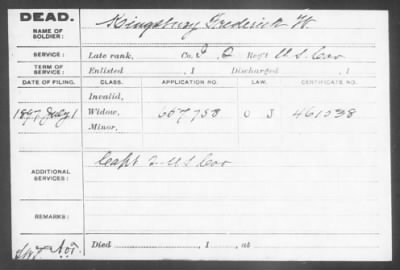 DEAD.
NAME OF SOLDIER: Kingsbury Frederick W
SERVICE: Late rank, Co. Reg't U S Cav
TERM OF SERVICE: Enlisted , 1 Discharged , 1
DATE OF FILING. CLASS. APPLICATION NO. LAW. CERTIFICATE NO.
Invalid,
1897 July 1 Widow, 657733 O 3 461038
Minor,
ADDITIONAL SERVICES: Capt 2 U S Cav
REMARKS:
Died , 1 , at